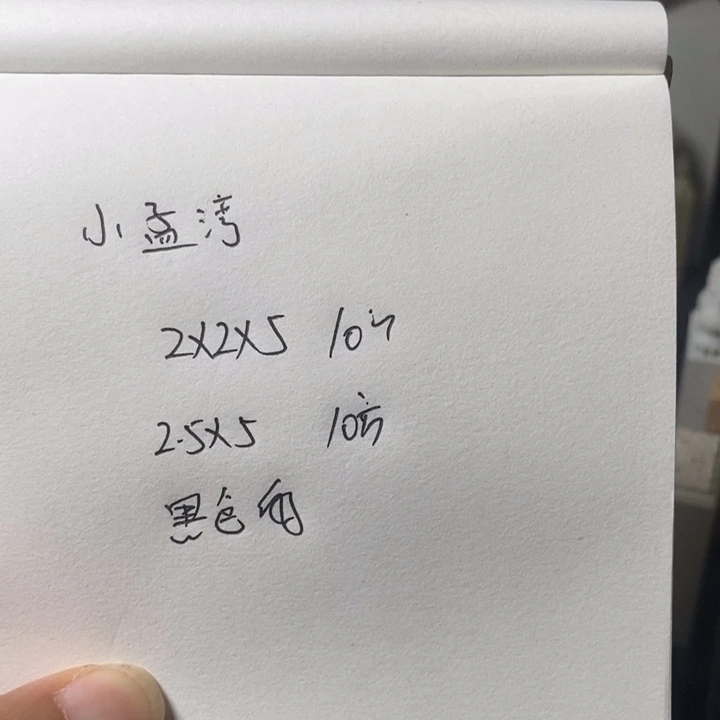 小孟湾
2X2X5 10
2.5X5 10
黑色